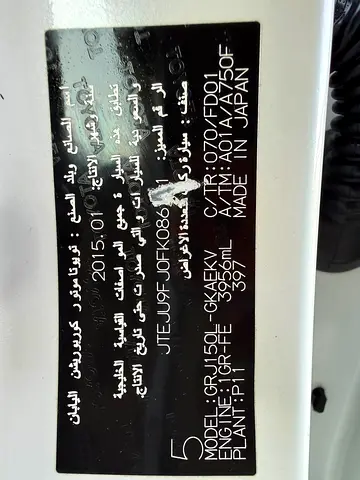 اسم الصانع وبلد الصنع : تويوتا موتور كوربوريشن اليابان
سنة وشهر الانتاج: 2015.01
تطابق هذه السيارة جميع المواصفات القياسية الخليجية
و السعودية للسيارات والتي صدرت حتى تاريخ الانتاج.
الرقم المميز: JTEJU9FJ0FK086 1
صنف : سيارة ركاب متعددة الاغراض
5
MODEL:GRJ150L-GKAEKV C/TR:070/FD01
ENGINE:1GR-FE 3956mL A/TM:A01A/A750F
PLANT:P11 397 MADE IN JAPAN